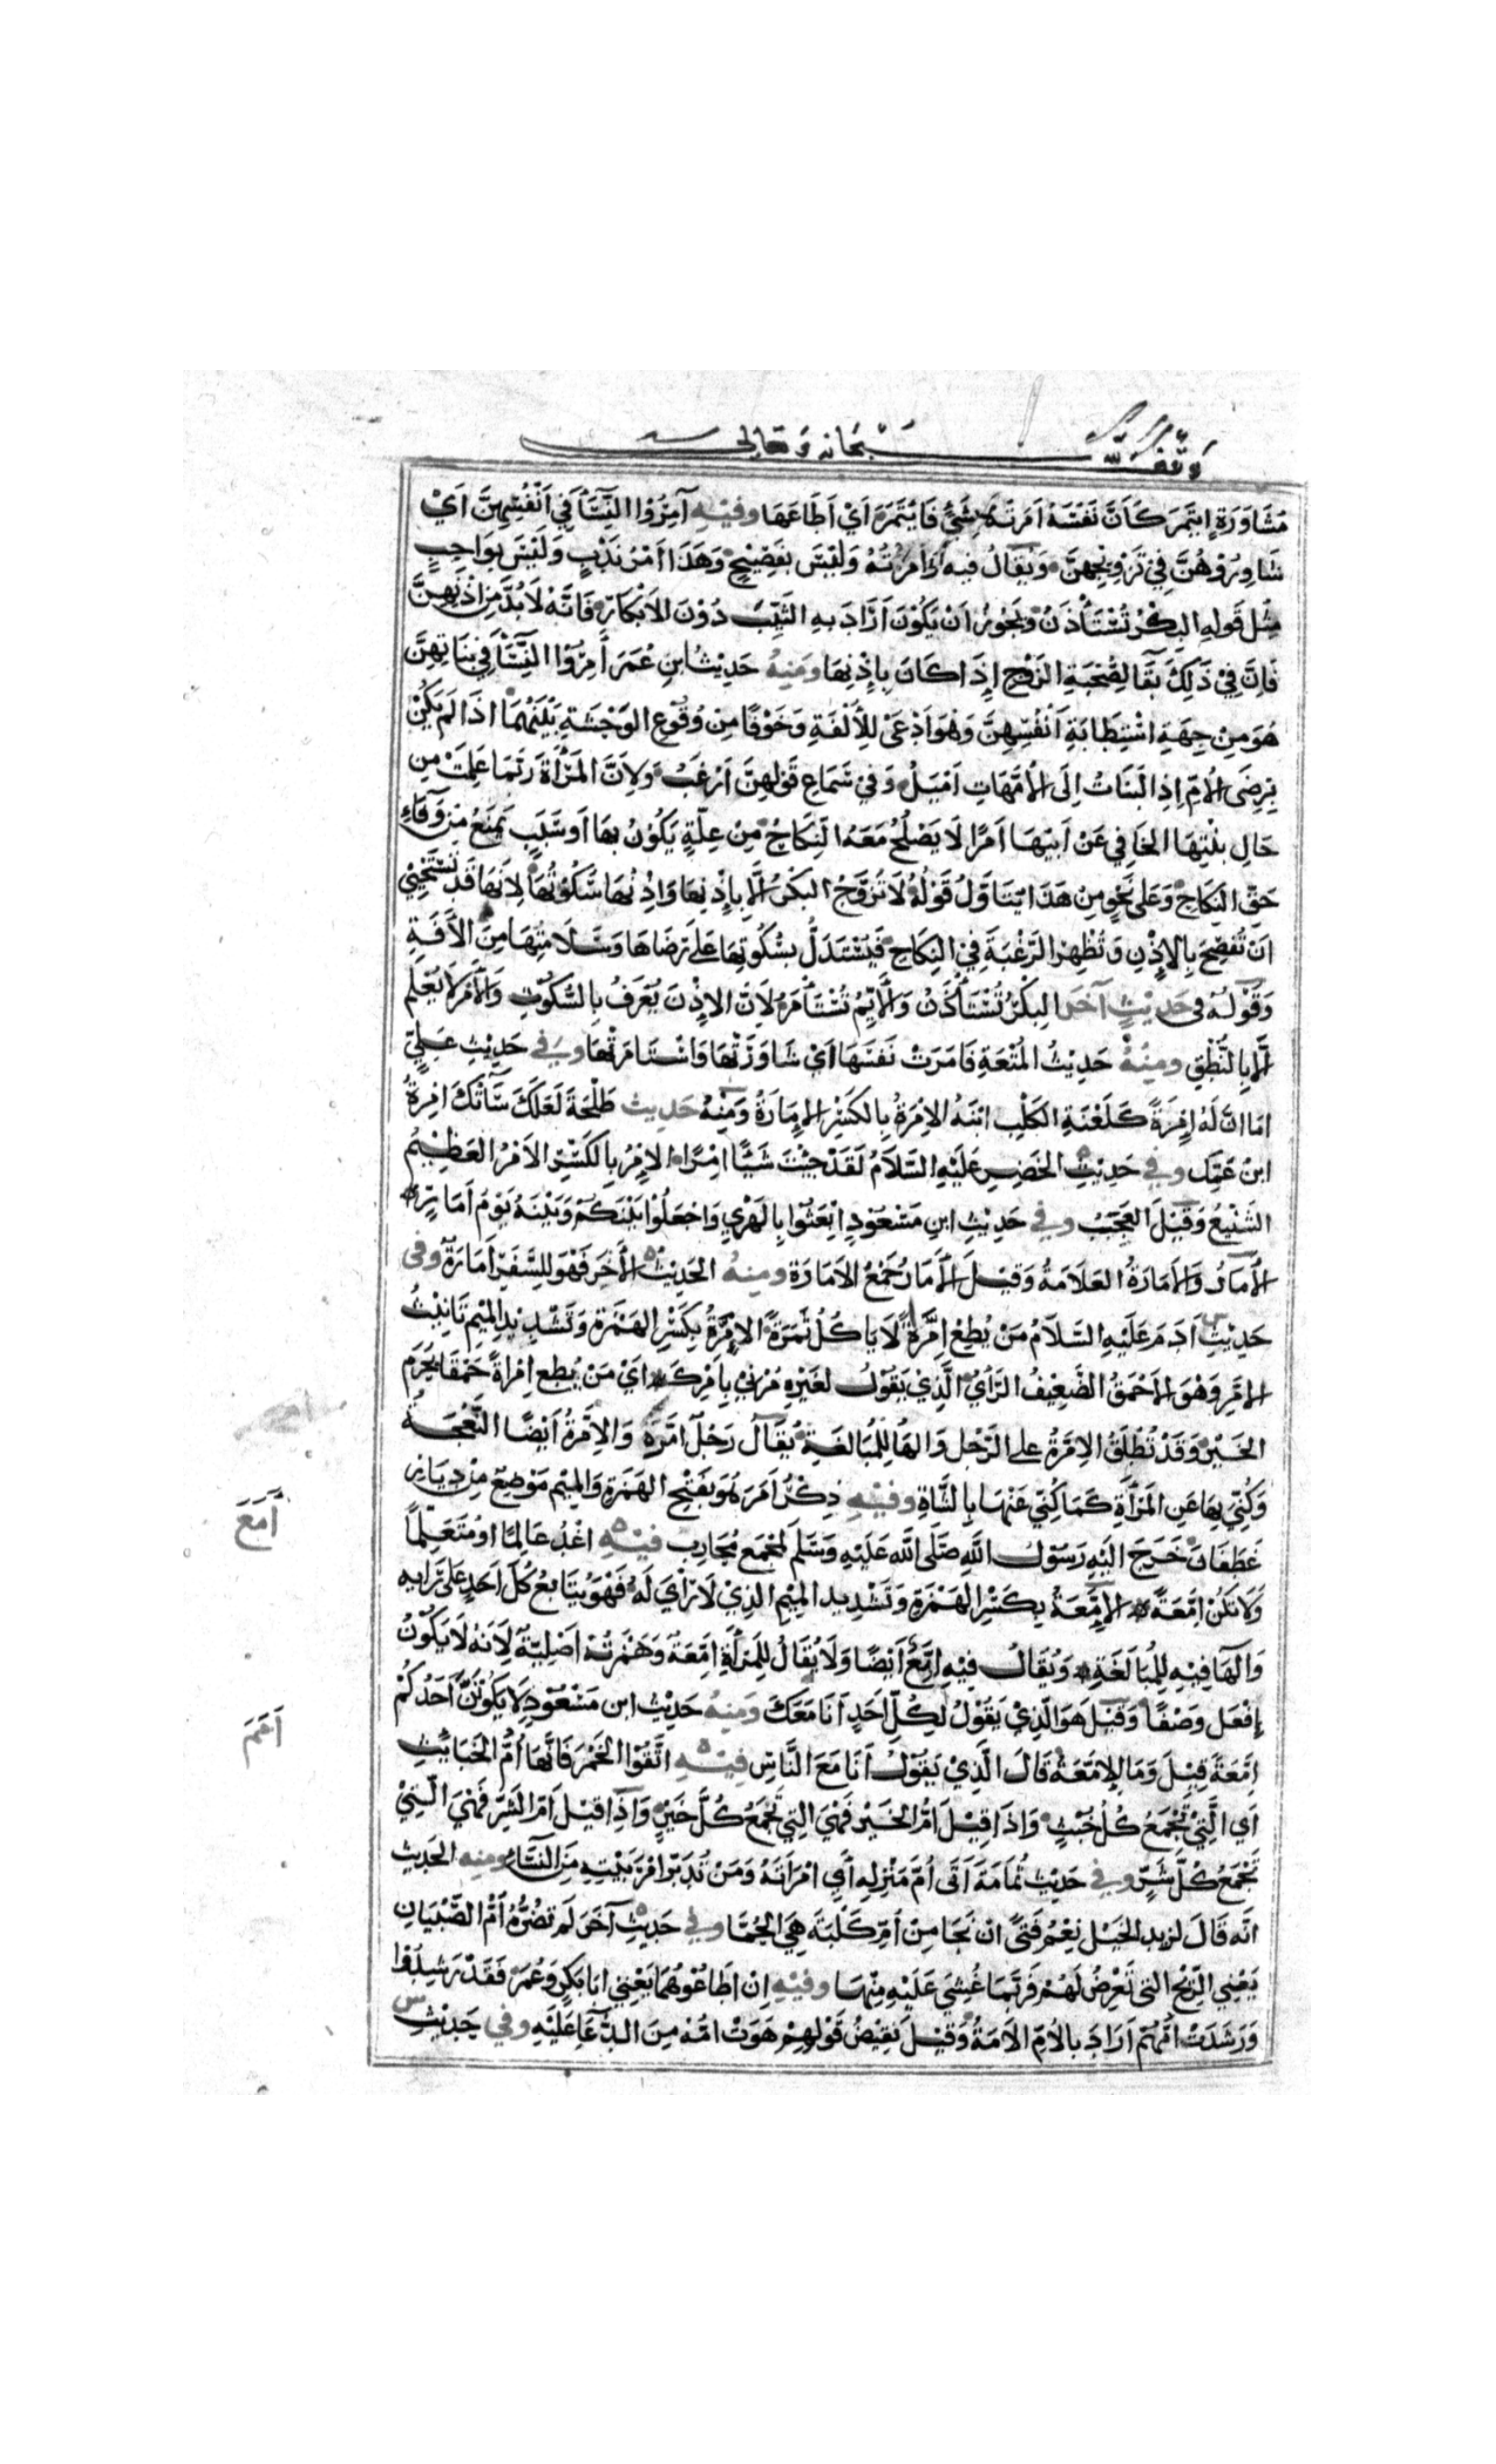 وقف لله سبحانه وتعالى
مُشَاوَرَةٍ ايتَمَرَ كَأَنَّ نَفْسَهُ اَمَرَتْهُ بِشَيْءٍ فَايْتَمَرَ اَيْ اَطَاعَهَا وفِيْهِ آمِرُوْا النِّسَاَ فِي اَنْفُسِهِنَّ اَيْ
شَاوِرُوْهُنَّ فِي تَزْوِيْجِهِنَّ وَيُقَالُ فيه وَأْمَرْتُهُ وَلَيْسَ بِفَصِيْحٍ وَهَذَا اَمْرُ نَدْبٍ وَلَيْسَ بِوَاجِبٍ
مِثْل قَولِهِ البِكْرُ تُسْتَأْذَنُ وَيَجُوزُ اَنْ يَكُونَ اَرَادَ بِهِ الثَّيِّبَ دُوْنَ الاَبْكَارِ فَاِنَّهُ لَابُدَّ مِنْ اِذْنِهِنَّ
فَاِنَّ فِيْ ذَلِكَ بَقَآ لِصُحْبَةِ الزَوْجِ اِذَا كَانَ بِاِذْنِهَا ومَنِهُ حَدِيْثُ ابنِ عُمَرَ آمِرُوْا النِّسَآ فِي بَنَاتِهِنَّ
هُوَ مِنْ جِهَةِ اسْتِطَابَةِ اَنْفُسِهِنَّ وَهُوَ اَدْعَى لِلْأُلْفَةِ وَخَوْفًا مِنْ وُقُوْعِ الوَحْشَةِ بَيْنَهُمَا اذَا لَمْ يَكُنْ
بِرِضَى الأُمّ اِذِ البَنَاتُ اِلَى الأُمَّهَاتِ اَمْيَلُ وَفِيْ سَمَاعِ قَوْلِهِنَّ اَرْغَبُ وَلِاَنَّ المَرْأَةَ رُبَّمَا عَلِمَتْ مِن
حَالِ بِنْتِهَا الخَافِي عَنْ اَبِيْهَا اَمْرًا لَا يَصْلُحُ مَعَهُ النِكَاحُ مِنْ عِلَّةٍ يَكُوْنُ بِهَا اَو سَبَبٍ يَمْنَعُ مِنْ وَفَاءِ
حَقِّ النِكَاحِ وَعَلَى نَحْوٍ مِنْ هَذَا يَتَاَوَّلُ قَوْلُهُ لَا تُزَوَّجُ البِكْرُ اِلَّا بِاِذْنِهَا وَاِذْنُهَا سُكُوْتُهَا لِاَنَهَا قَدْ تَسْتَحْيِيْ
اَنْ تُفْصِحَ بِالاِذْنِ وَتُظْهِرَ الرَغْبَةَ فِيْ النِكَاحِ فَيُسْتَدَلُّ بِسُكُوتِهَا عَلَى رِضَاهَا وَسَلَامَتِهَا مِنَ الآَفَةِ
وَقُوْلُهُ فى حَدِيْثٍ آخَرَ البِكْرُ تُسْتَأْذَنُ وَالأَيِّمُ تُسْتَأْمَرُ لِاَنَّ الاِذْنَ يُعْرَفُ بِالسُّكُوْتِ وَالأَمْرَ لَا يُعْلَم
اِلَّا بِالنُّطْقِ ومِنْهُ حَدِيْثُ المُتْعَةِ فَامَرَتْ نَفْسَهَا اَيْ شَاوَرَتْهَا وَاسْتَامَرَتْهَا وفي حَدِيْثِ عَلِيٍّ
امَا اِنَّ لَهُ اِمْرَةً كَلَعْقَةِ الكَلْبِ ابْنَهُ الاِمْرَةُ بِالكَسْرِ الاِمَارَةُ وَمَنْهُ حَدِيث طَلْحَةَ لَعَلَّكَ سَآتْكَ اِمْرَةُ
ابنْ عَمِّكَ وفي حَدِيْثِ الخَضِرِ عَلَيْهِ السَّلَامُ لَقَدْ جِئْتَ شَيْئًا اِمْرًا الاِمْرُ بِالكَسْرِ الاَمْرُ العَظِيْمُ
الشَّنِيْعُ وَقِيْلَ العَجَبُ وفي حَدِيْثِ ابنِ مَسْعُوْدٍ اِبْعَثُوْا بِالهَدْيِ وَاجْعَلُوْا بَيْنَكُمْ وَبَيْنَهُ يَوْمَ اَمَارٍ
الأَمَارُ وَالأَمَارَةُ العَلَامَةُ وَقِيْلَ الأَمَارُ جَمْعُ الاَمَارَة ومِنهُ الحَدِيْثُ الأَخَرَ فَهَوَ لِلسَّفَرِ اَمَارَةٌ وفى
حَدِيْثِ آدَمَ عَلَيْهِ السَّلَامُ مَنْ يُطِعْ اِمَّرَةً لَا يَاكُلُ ثَمَرَةً الاِمَّرَةُ بِكَسْرِ الهَمْزَةِ وَتَشْدِيْدِ المِيْمِ تَانِيْثُ
الاِمَّرِ وَهْوَ الاَحْمَقُ الضَعِيْفُ الرَّأْيِ الَّذِيْ يَقُوْلُ لغَيْرِهِ مُرْنِيْ بِاَمْرِكَ اَيْ مَنْ يُطِعِ اِمْرَاةً حَمْقَا يُحْرَمِ
الخَيْرَ وَقَدْ تُطْلَقُ الاِمَّرَةُ على الرَجُلِ وَالهَا لِلْمُبَالَغَةِ يُقَالُ رَجُلٌ اِمَّرَةٌ وَالاِمَّرَةُ اَيْضًا النَّعْجَةُ
وَكُنِّيَ بِهَا عَنِ المَرْأَةِ كَمَا كُنِّيَ عَنْهَا بِالشَّاةِ وفيْهِ ذِكْرُ اَمَرَ هُوَ بِفَتْحِ الهَمْزَةِ وَالمِيْمِ مَوْضِعٌ مِنْ دِيَارِ
غَطَفَانَ خَرَجَ اليْهِ رَسَوْلُ اللَّهِ صَلَّى اللَّه عَلَيْهِ وَسَلَّمَ لِجَمْعِ مُحَارِبٍ فيْهِ اغْدُ عَالِمًا اوْ مُتَعَلِّمًا
وَلَا تَكُنْ اِمَّعَةً الاِمَّعَةُ بِكَسْرِ الهَمْزَةِ وَتَشْدِيدِ المِيْمِ الذِيْ لَا رَأْيَ لَهُ فَهْوَ يُتَابِعُ كُلَّ اَحَدٍ عَلَى رَايِهِ
وَالهَا فِيْهِ لِلمُبَالَغَةِ وَيُقَالُ فيْهِ اِمَّعٌ اَيْضًا وَلَا يُقَالُ لِلْمَرْأَةِ اِمَّعَةٌ وَهَمْزَتُهُ اَصْلِيَّةٌ لِاَنَّهُ لَا يَكُوْنُ
اِفْعَل وَصْفًا وَقِيْلَ هَوَ الَّذِيْ يَقُوْلُ لِكُلِّ اَحَدٍ اَنَا مَعَكَ وَمِنهُ حَدِيْث ابن مَسْعُوْدٍ لَا يَكُوْنَنَّ اَحَدُكُمْ
اِمَّعَةً قِيْلَ وَمَا الاِمَّعَةُ قَالَ الَّذِيْ يَقُوْلُ اَنَا مَعَ النَّاسِ فِيْهِ اتَّقُوْا الخَمْرَ فَاِنَّهَا اُمُّ الخَبَايِثِ
اَي الَّتِيْ تَجْمَعُ كُلَّ خُبْثٍ وَاذَا قِيْلَ اُمُّ الخَيْرِ فَهْيَ التِي تَجْمَعُ كُلَّ خَيْرٍ وَاذَا قيْلَ اُمّ الشَرِّ فَهْيَ الَّتِيْ
تَجْمَعُ كُلَّ شَرٍّ وفي حَدِيْثِ ثُمَامَةَ اَتَى اُمَّ مَنْزِلِهِ اَي امْرَاَتَهُ وَمَنْ تُدَبِّرُ امْرَ بَيْتِهِ مِنَ النِّسَآءِ ومِنه الحَدِيْث
انَّه قَالَ لزيد الخَيْل نِعْمَ فَتًى اِنْ نَجَا مِنْ اُمِّ كَلْبَةَ هِيَ الحُمَّى وفي حَدِيْثٍ آخَرَ لَم تضُرَّهُ اُمُّ الصِّبْيَانِ
يَعْنِي الرِّيْحَ التى تَعْرِضُ لَهُمْ فَرُبَّمَا غُشِيَ عَلَيْهِ مِنْهَا وفيْهِ اِنْ اَطَاعُوْهُمَا يَعْنِي ابَا بَكْرٍ وَعُمَرَ فَقَدْ رَشِدُوْا
وَرَشَدَتْ اُمُّهُمْ اَرَادَ بالاُمّ الاُمَةَ وَقِيْلَ نَقِيْضُ قَوْلِهِمْ هَوَتْ امُّهُ مِنَ الدُّعَآ عَلَيْهِ وفي حَدِيْثِ
اَمَعَ
اَمَمَ